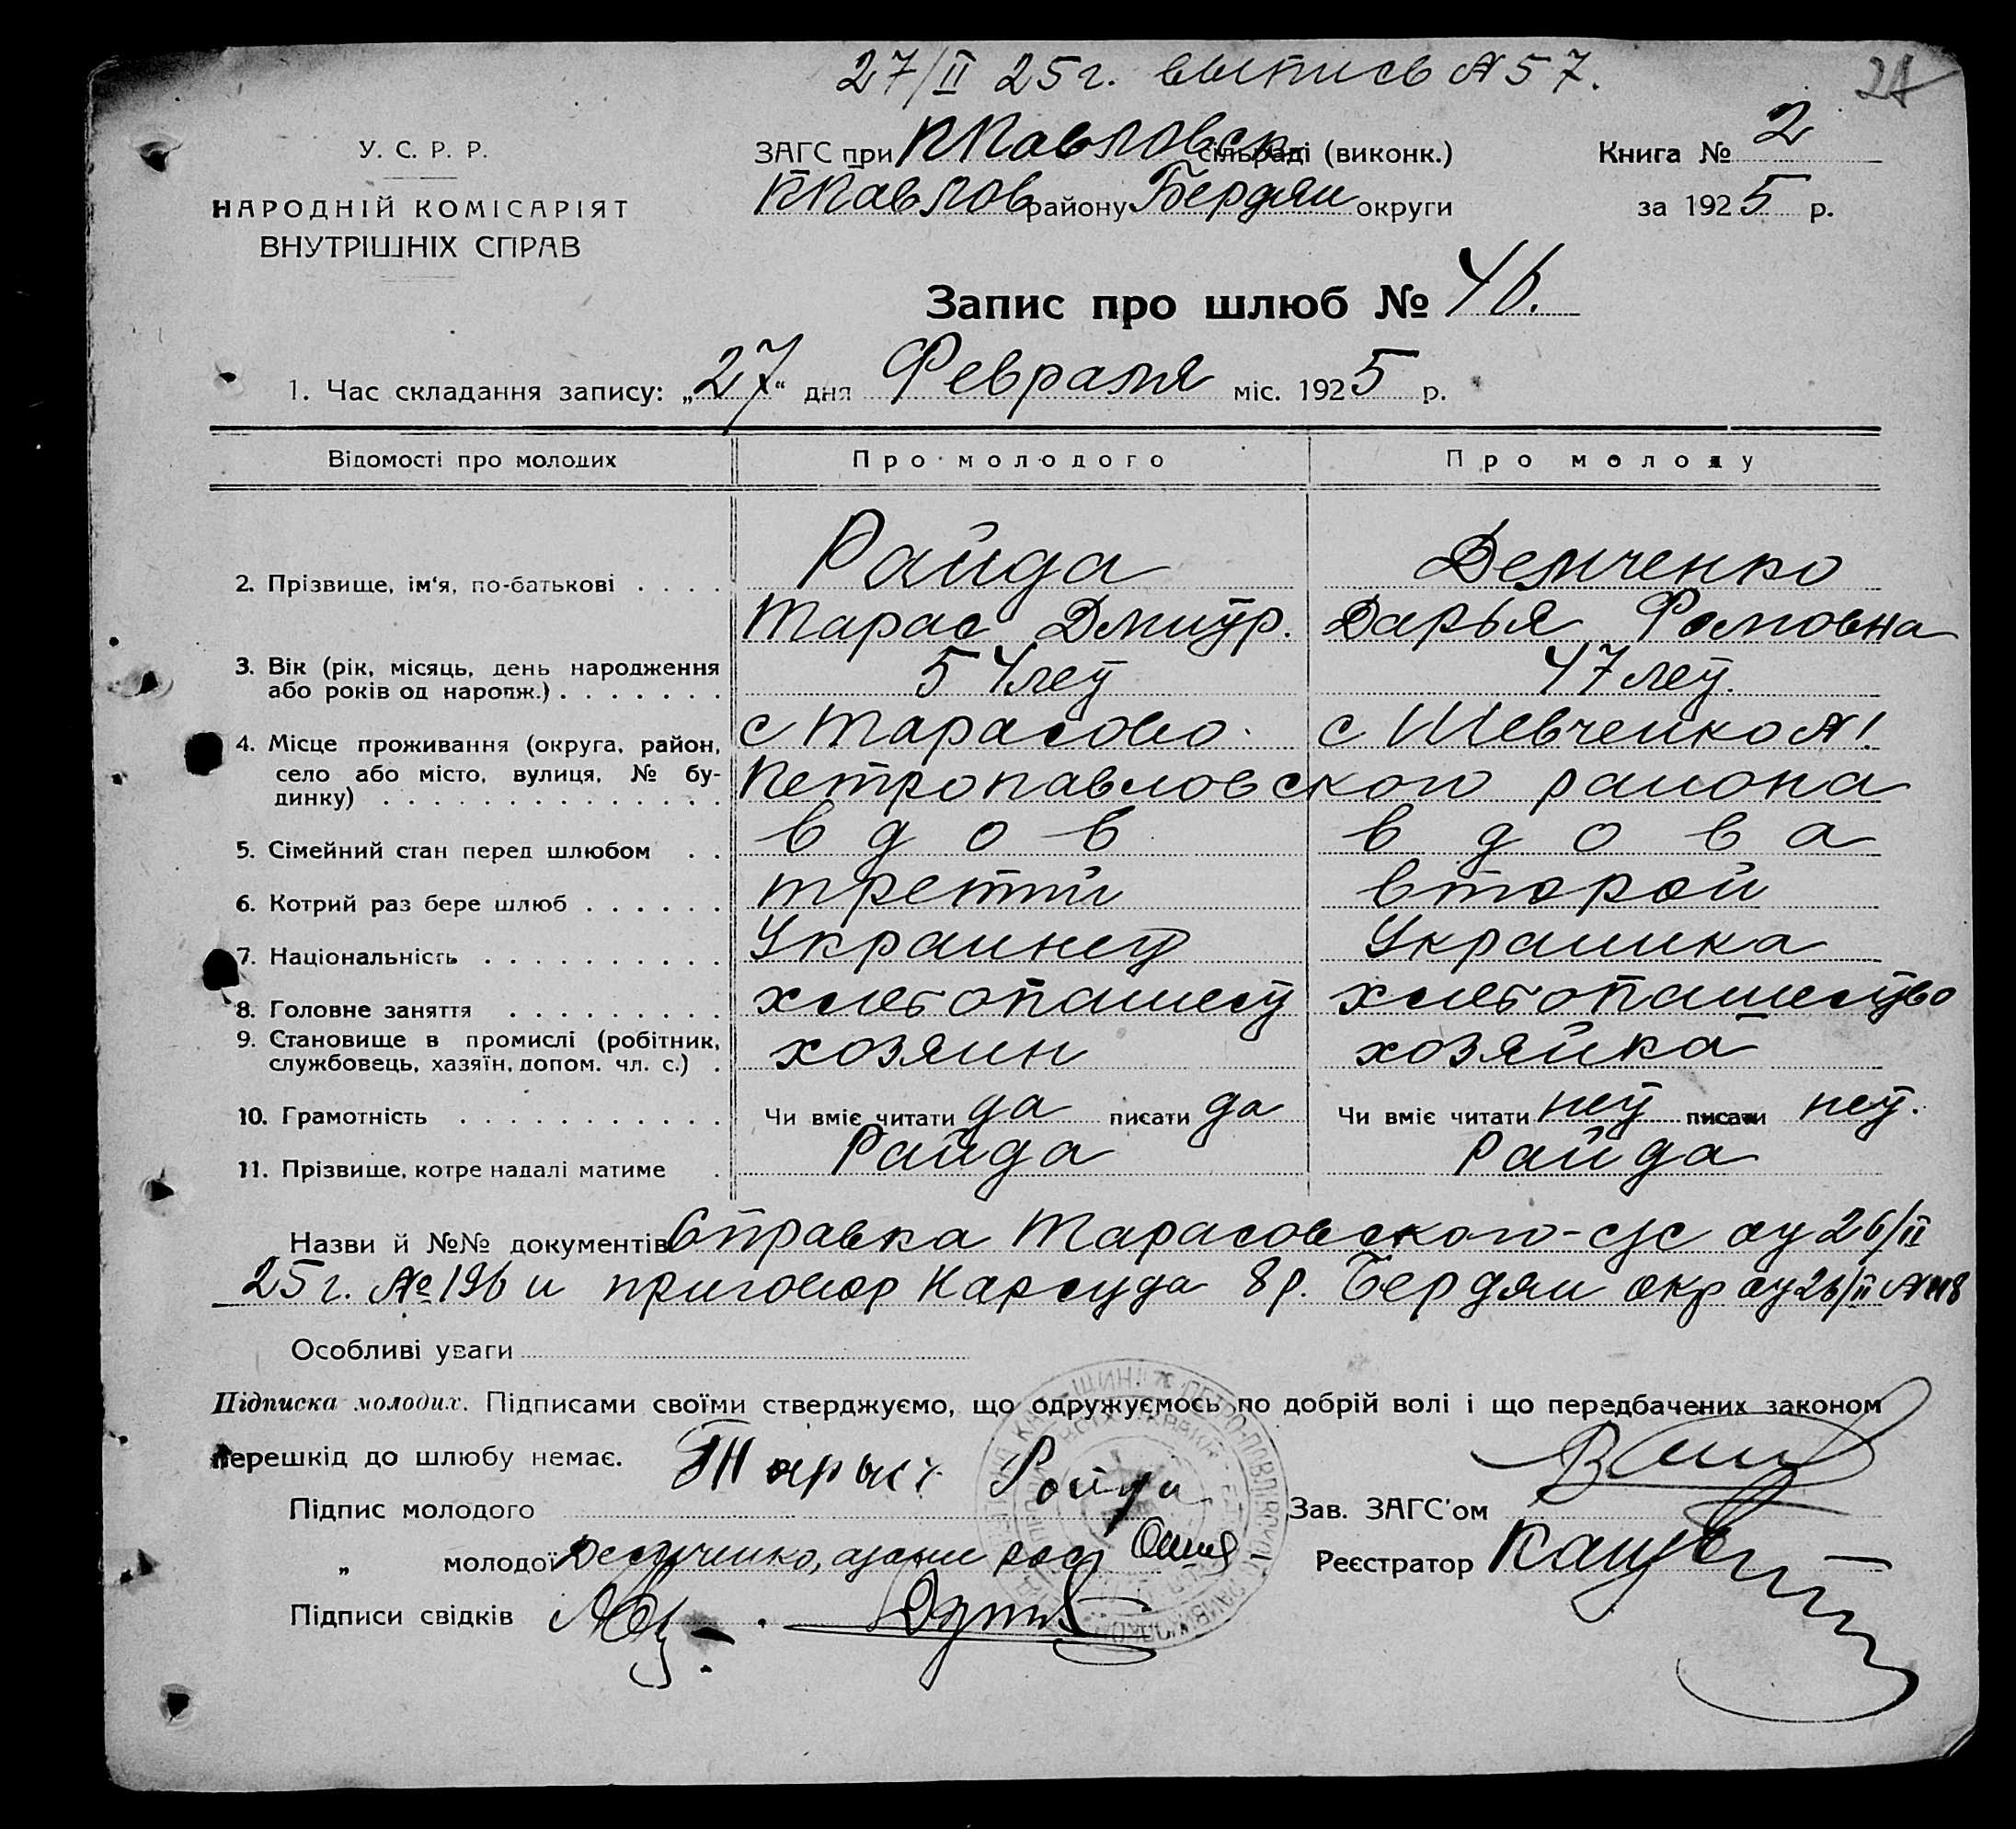 27/II 25г. выпись №57.
21
У. С. Р. Р.
НАРОДНІЙ КОМІСАРІЯТ
ВНУТРІШНІХ СПРАВ
ЗАГС при ППавловск сільраді (виконк.)
ППавлов району Бердян округи
Книга № 2
за 1925 р.
Запис про шлюб № 46.
1. Час складання запису: „27“ дня Февраля міс. 1925 р.
Відомості про молодих Про молодого Про молоду
2. Прізвище, ім'я, по-батькові . . . . Райда Демченко
Тарас Дмитр. Дарья Фомовна
3. Вік (рік, місяць, день народження
або років од народж.) . . . . . . . 54 лет 47 лет.
4. Місце проживання (округа, район, с Тарасово. с Шевченко №1
село або місто, вулиця, № бу-
динку) . . . . . . . . . . . . . . Петропавловского района
5. Сімейний стан перед шлюбом . . вдов вдова
6. Котрий раз бере шлюб . . . . . . третий второй
7. Національність . . . . . . . . . . Украинец Украинка
8. Головне заняття . . . . . . . . . хлебопашест хлебопашество
9. Становище в промислі (робітник,
службовець, хазяїн, допом. чл. с.) . хозяин хозяйка
10. Грамотність . . . . . . . . . . . Чи вміє читати да писати да Чи вміє читати нет писати нет.
11. Прізвище, котре надалі матиме . Райда Райда
Назви й №№ документів Справка Тарасовского с/с от 26/II
25г. №196 и приговор Нарсуда 8 р. Бердян окр от 26/II №
Особливі уваги
Підписка молодих. Підписами своїми стверджуємо, що одружуємось по добрій волі і що передбачених законом
перешкід до шлюбу немає.
Підпис молодого Тарас Райда
Зав. ЗАГС'ом
„ молодої Демченко,
Реєстратор
Підписи свідків